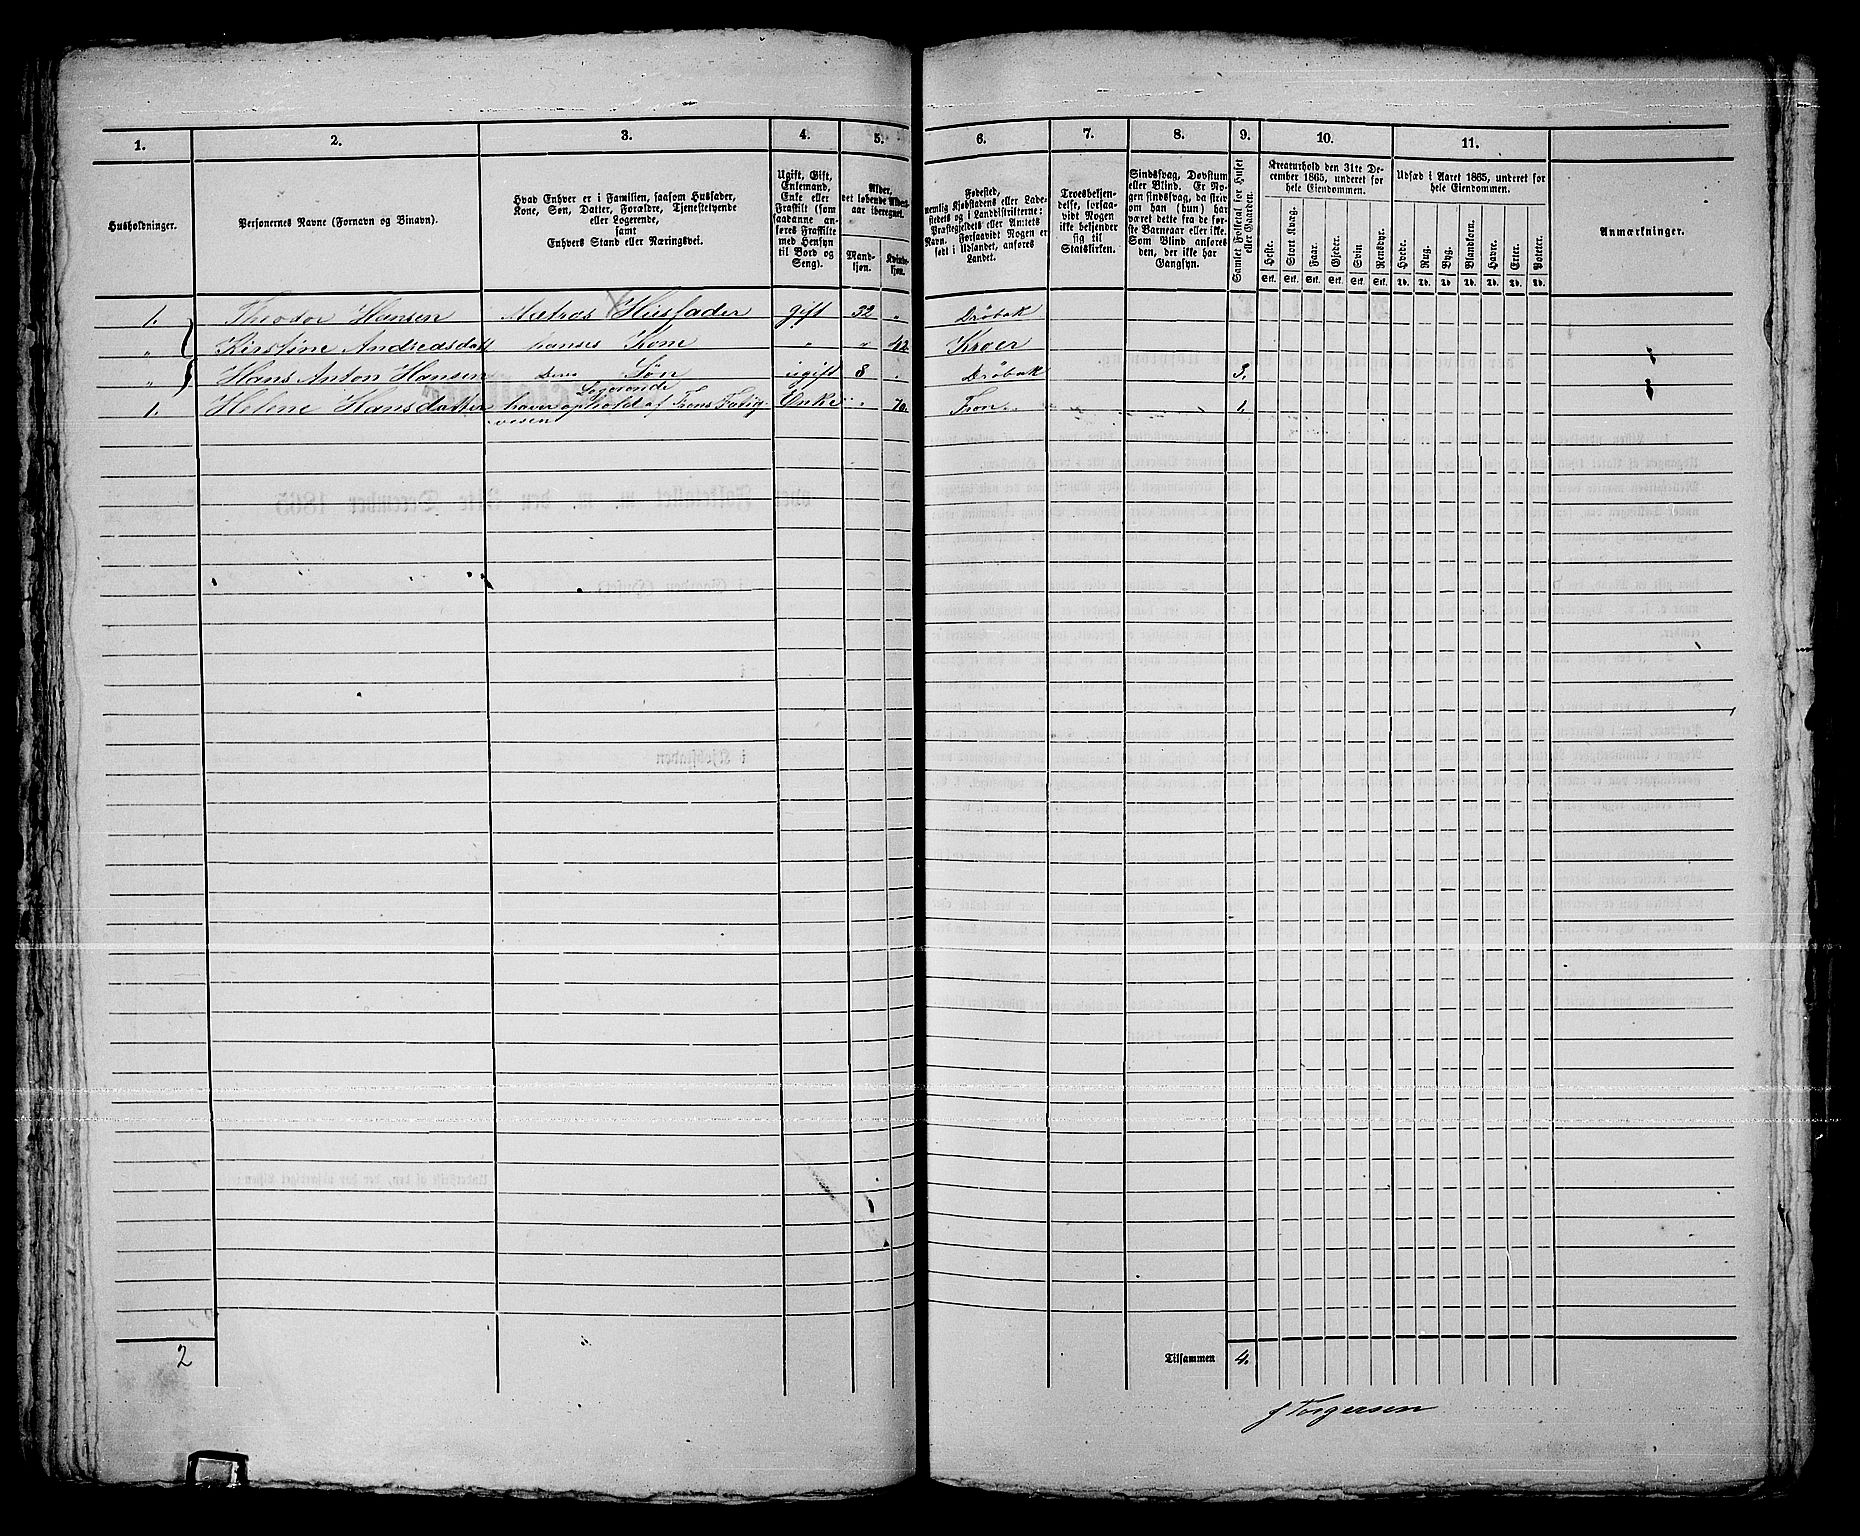 1. 2. 3. 4. 5. 6. 7. 8. 9. 10. 11.
Husholdninger.
Personernes Navne (Fornavn og Binavn).
Hvad Enhver er i Familien, saasom Husfader,
Kone, Søn, Datter, Forældre, Tjenestetyende
eller Logerende,
samt
Enhvers Stand eller Næringsvei.
Ugift, Gift,
Enkemand,
Enke eller
Fraskilt (som
saadanne an-
føres Fraskilte
med Hensyn
til Bord og
Seng).
Alder,
det løbende Alders-
aar iberegnet.
Mand-
kjøn.
Kvinde-
kjøn.
Fødested,
nemlig Kjøbstadens eller Lade-
stedets og i Landdistrikterne:
Præstegjeldets eller Amtets
Navn. Forsaavidt Nogen er
født i Udlandet, anføres
Landet.
Troesbekjen-
delse, forsaa-
vidt Nogen
ikke bekjender
sig til
Statskirken.
Sindssvag, Døvstum
eller Blind. Er No-
gen sindssvag, da skrives
om han (hun) har
været dette fra de før-
ste Barneaar eller ikke.
Som Blind anføres
den, der ikke har
Gangsyn.
Samlet Folketal for Huset
eller Gaarden.
Kreaturhold den 31te De-
cember 1865, underet for
hele Eiendommen.
Heste. Stort Kvæg. Faar. Gjeder. Svin Rensdyr.
Stk. Stk. Stk. Stk. Stk. Stk.
Udsæd i Aaret 1865, underet for
hele Eiendommen.
Hvede. Rug. Byg. Blandkorn. Havre. Erter. Poteter.
Td. Td. Td. Td. Td. Td. Td.
Anmærkninger.
1. Theodor Hansen Matros Husfader gift 32 " Drøbak
" Kirstine Andreasdatt hanses Kone " " 42 Kroer
" Hans Anton Hansen Deres Søn ugift 8 " Drøbak 3.
Logerende
1. Helene Hansdatter haver ophold af Frons Fattig- Enke " 70. Fron 1.
vesen
2 Tilsammen 4.
J Torgersen